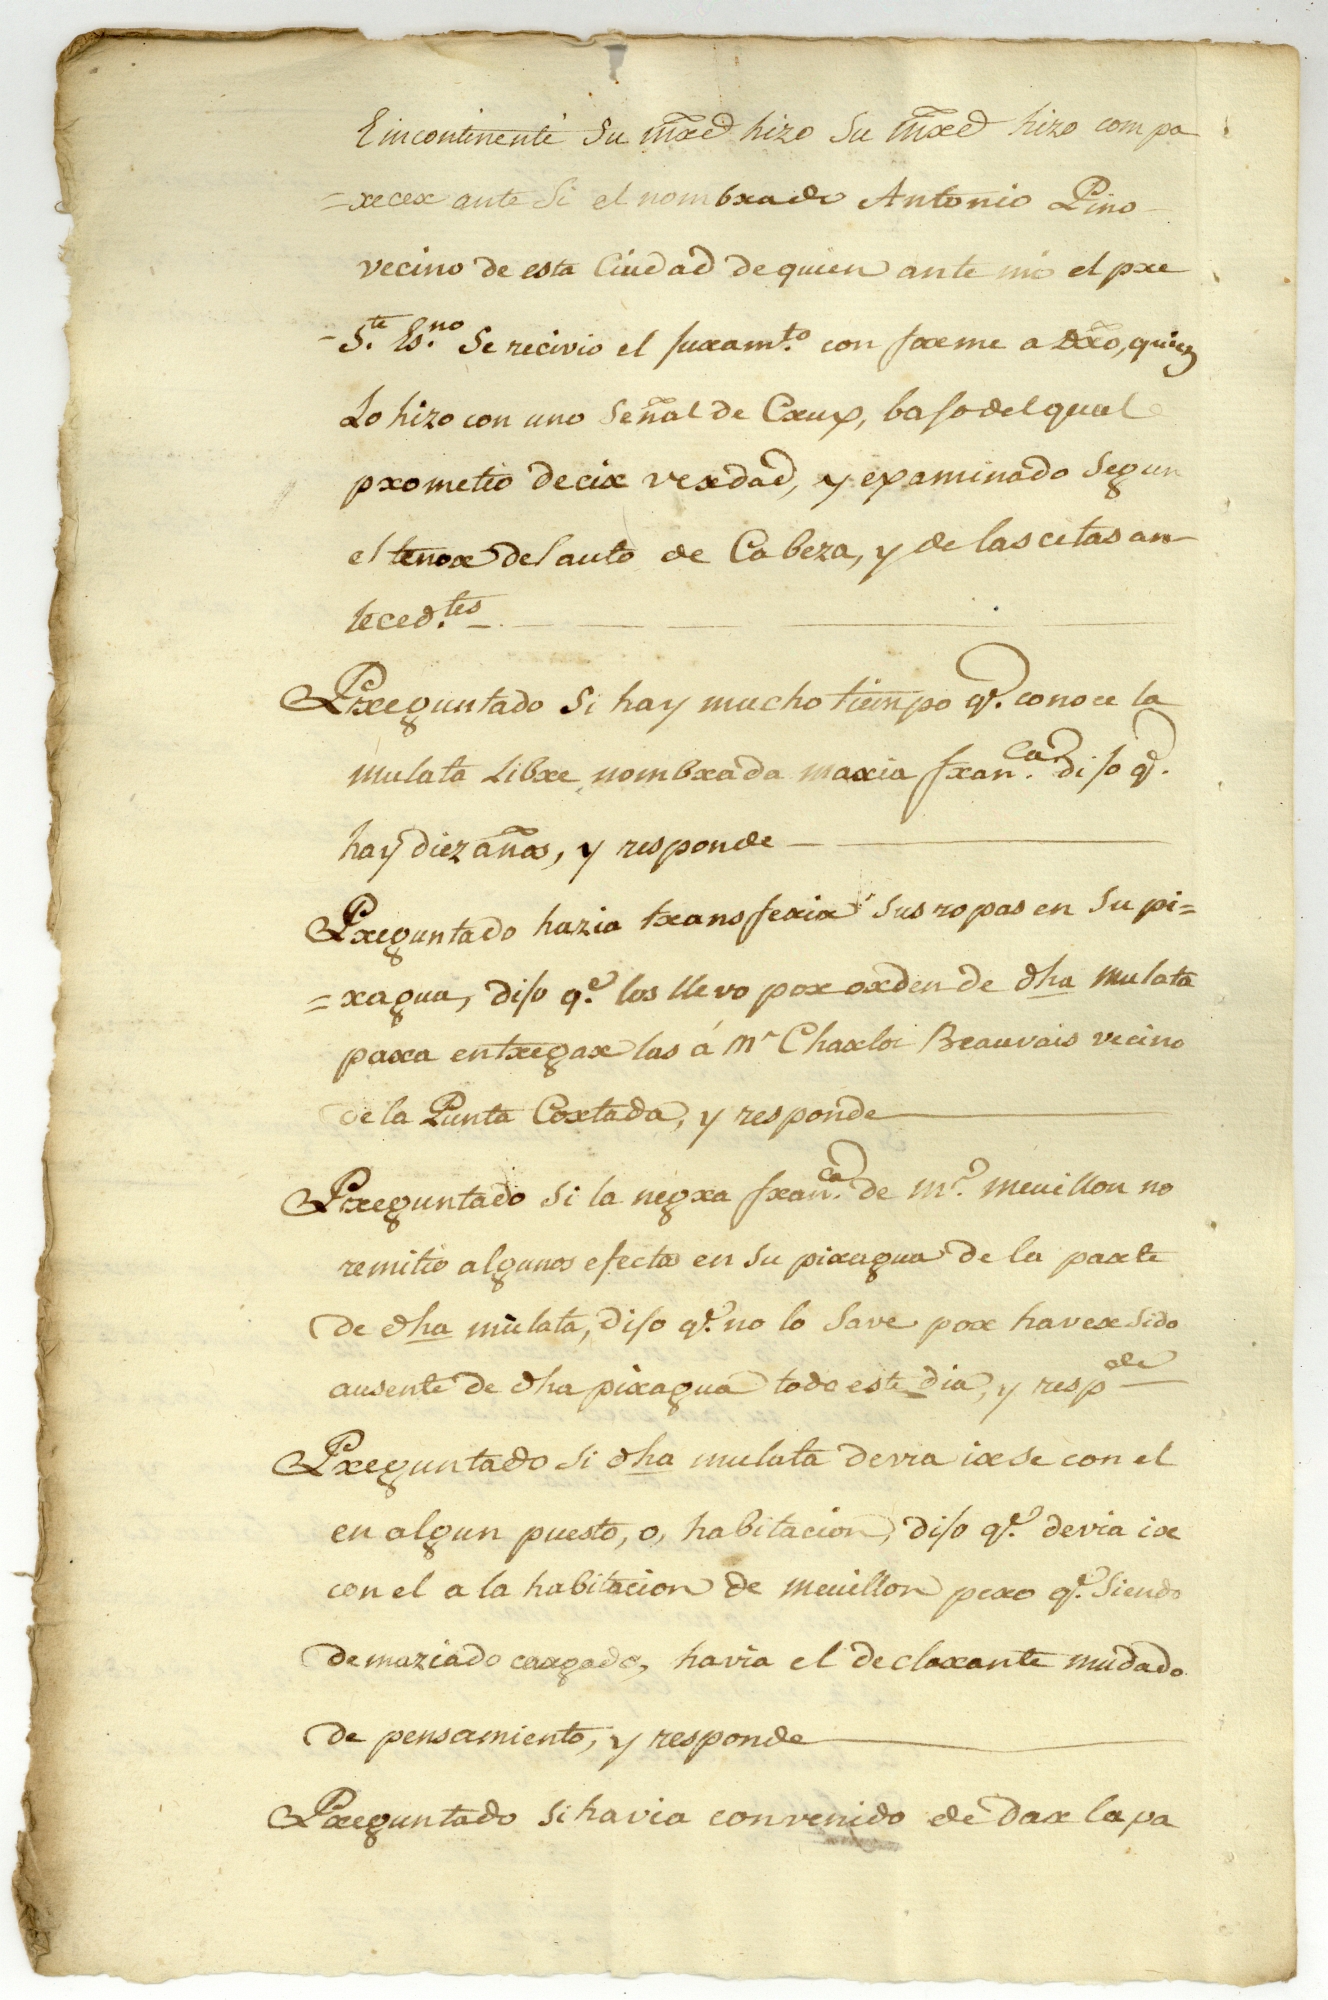 E incontinente Su mrẽd hizo Su mrẽd hizo compa
=recer ante Si el nombrado Antonio Pino
vecino de esta Ciudad de quien ante mi el pre
-S.te Es.no Se recivio el Juram.to con forme a dr̃o, quien
Lo hizo con uno Señal de Crux, bajo del qual
prometio decir verdad, y examinado Segun
el tenor del auto de Cabeza, y de las citas an
teced.tes
Preguntado Si hay mucho tiempo q.e conoce la
mulata Libre nombrada maria fran.ca dijo q.e
hay diez años, y responde
Preguntado hazia transferir Sus ropas en Su pi=
=ragua, dijo q.e los llevo por orden de dha mulata
para entregar las á Mr Charlos Beauvais vecino
de la Punta Cortada, y responde
Preguntado Si la negra fran.ca de mr. meuillon no
remitio algunos efectos en Su piragua de la parte
de dha mulata, dijo q.e no lo Save por haver Sido
ausente de dha piragua todo este dia, y resp.de
Preguntado Si dha mulata devia irse con el
en algun puesto, o, habitacion, dijo q.e devia ir
con el a la habitacion de meuillon pero q.e Siendo
demaziado cargado, havia el declarante mudado
de pensamiento, y responde
Preguntado Si havia convenido de dar la pa